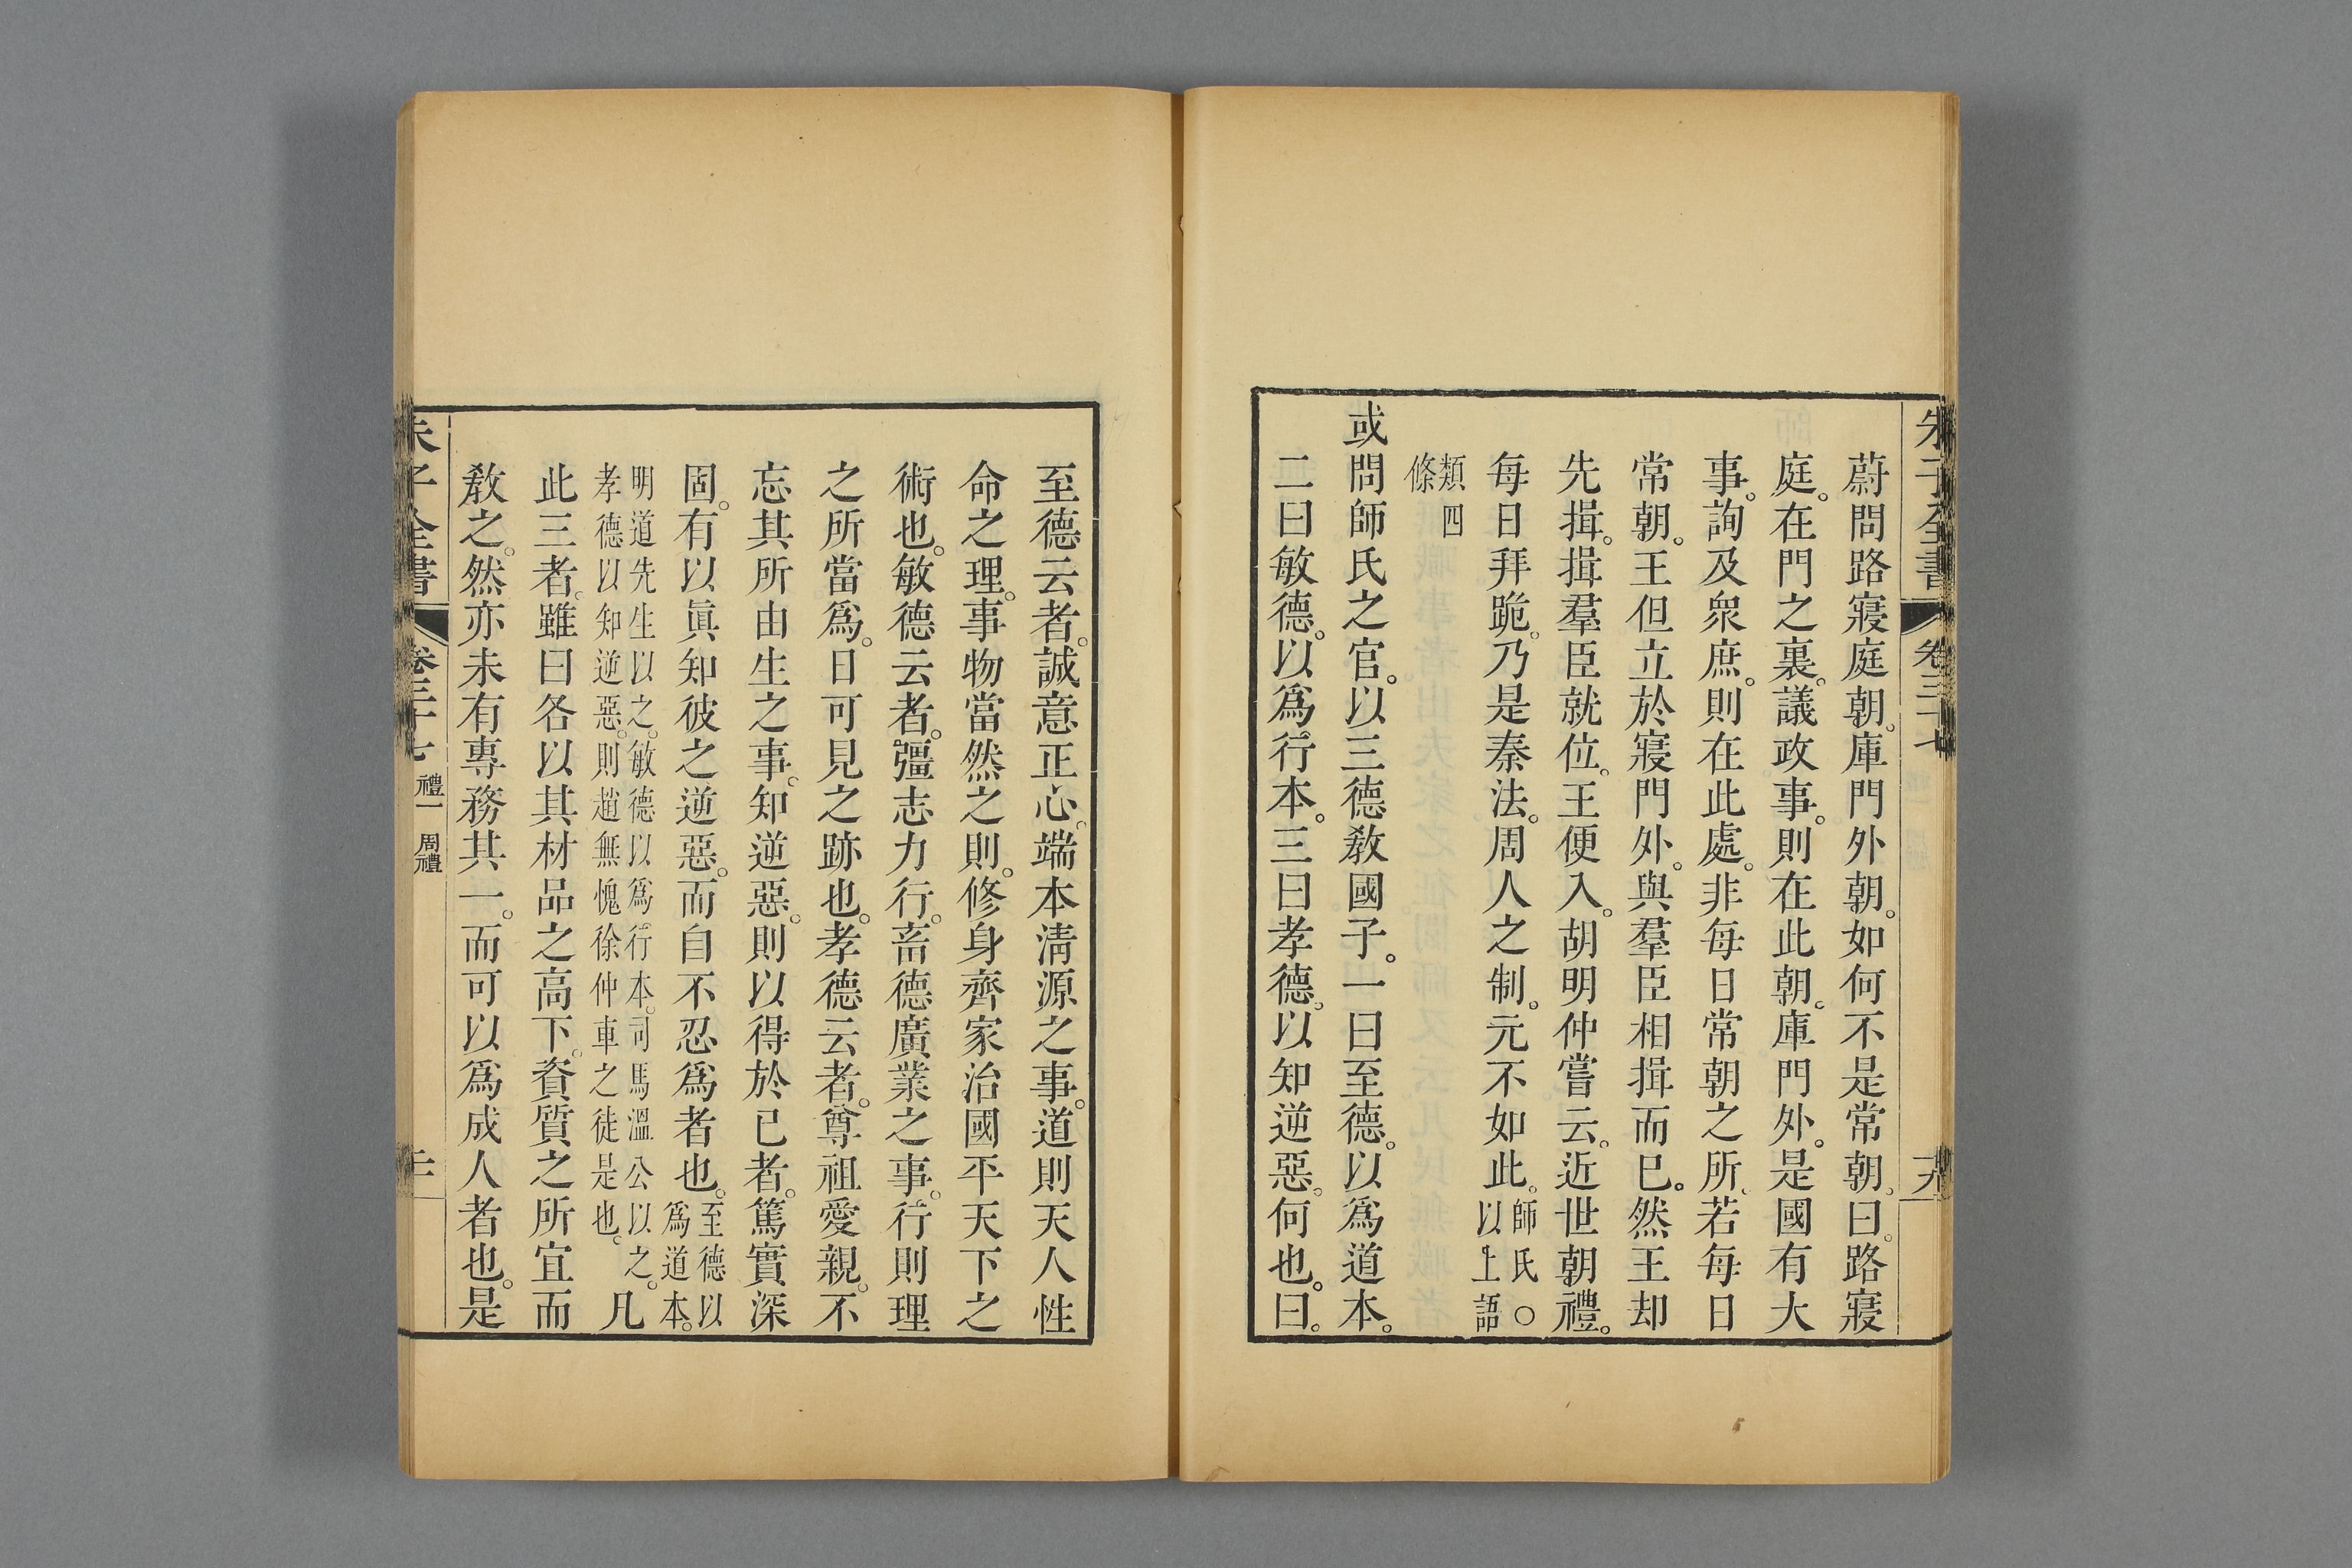 朱子全書 卷三十七 十九
蔚問路寢庭朝。庫門外朝。如何不是常朝。曰。路寢
庭。在門之裏。議政事。則在此朝。庫門外。是國有大
事。詢及衆庶。則在此處。非每日常朝之所。若每日
常朝。王但立於寢門外。與羣臣相揖而已。然王却
先揖。揖羣臣就位。王便入。胡明仲嘗云。近世朝禮。
每日拜跪。乃是秦法。周人之制。元不如此。師氏○以上語
類四條
或問師氏之官。以三德敎國子。一曰至德。以爲道本。
二曰敏德。以爲行本。三曰孝德。以知逆惡。何也。曰。
至德云者。誠意正心。端本淸源之事。道則天人性
命之理。事物當然之則。修身齊家治國平天下之
術也。敏德云者。彊志力行。畜德廣業之事。行則理
之所當爲。日可見之跡也。孝德云者。尊祖愛親。不
忘其所由生之事。知逆惡。則以得於已者。篤實深
固。有以眞知彼之逆惡。而自不忍爲者也。至德以爲道本。
明道先生以之。敏德以爲行本。司馬溫公以之。孝德以知逆惡。則趙無愧徐仲車之徒是也。凡
此三者。雖曰各以其材品之高下。資質之所宜而
敎之。然亦未有專務其一。而可以爲成人者也。是
朱子全書 卷三十七 禮一 周禮